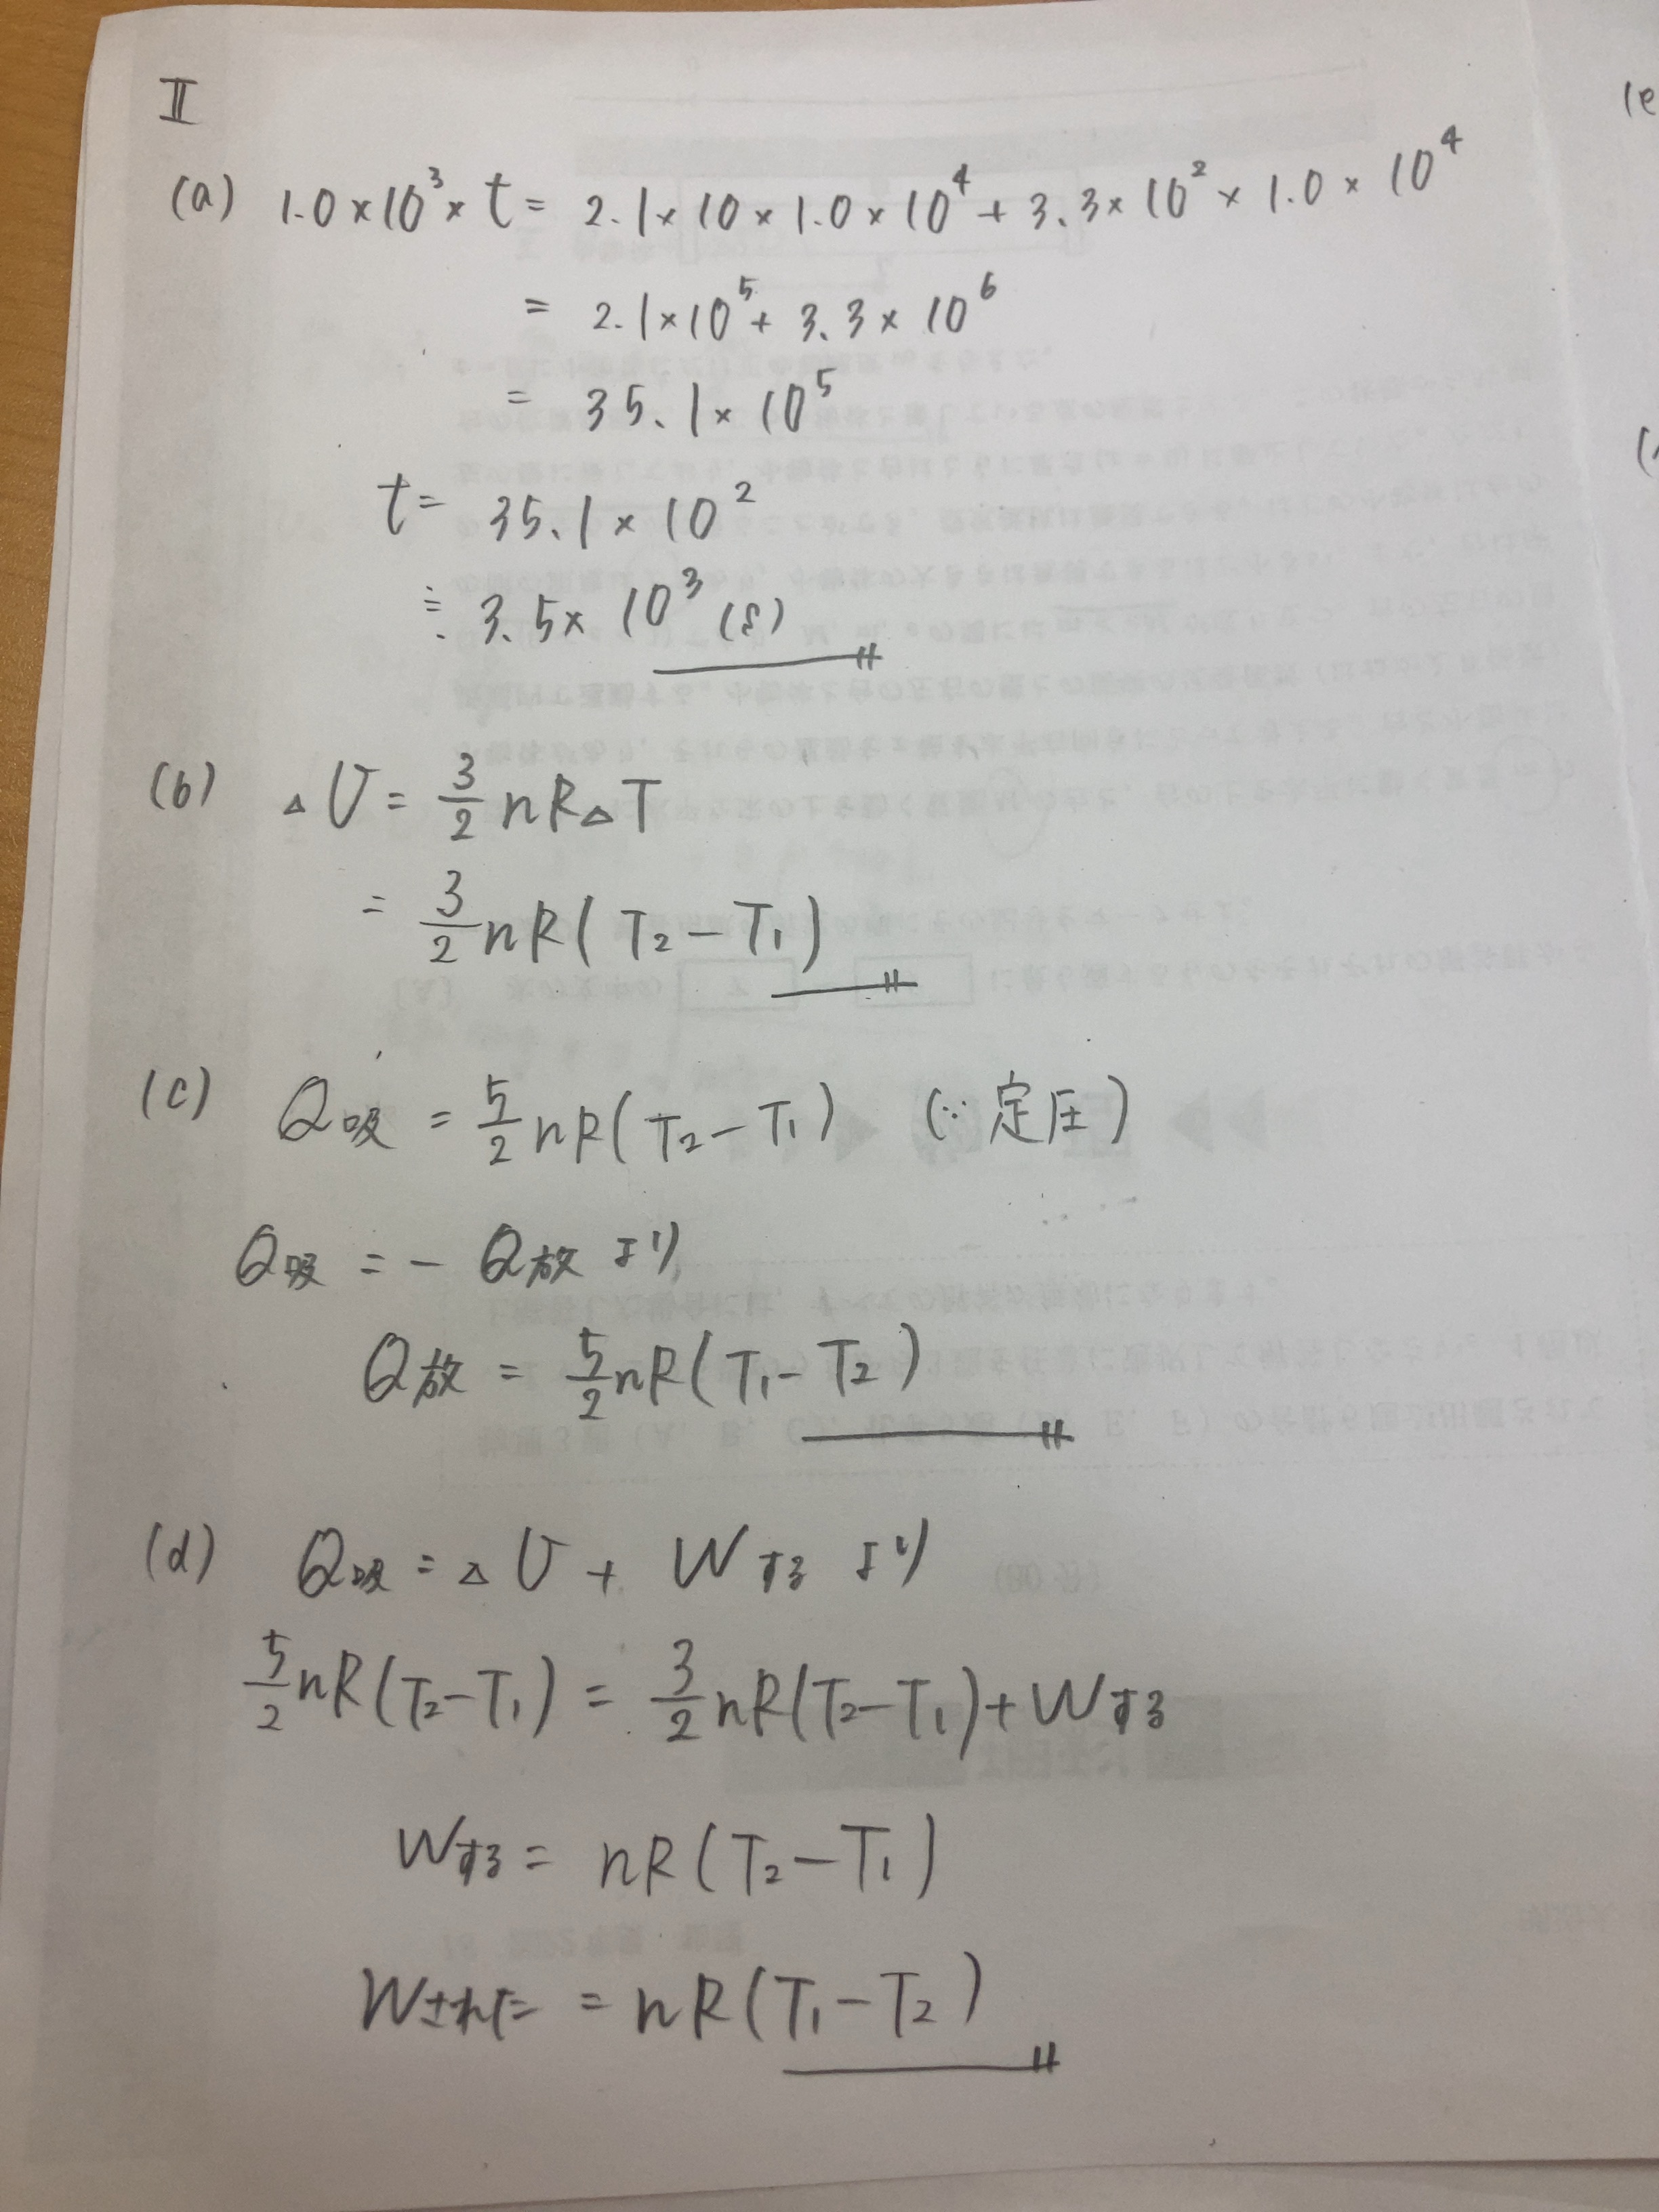 II
(a) 1.0×10³×t = 2.1×10×1.0×10⁴+3.3×10²×1.0×10⁴
= 2.1×10⁵+3.3×10⁶
= 35.1×10⁵
t= 35.1×10²
≒ 3.5×10³ (s)
(b) △U = 3/2 nR△T
= 3/2 nR(T₂-T₁)
(c) Q吸 = 5/2 nR(T₂-T₁) (∵定圧)
Q吸 = -Q放 より
Q放 = 5/2 nR(T₁-T₂)
(d) Q吸 = △U + Wする より
5/2 nR(T₂-T₁) = 3/2 nR(T₂-T₁)+Wする
Wする = nR(T₂-T₁)
Wされた = nR(T₁-T₂)
(e